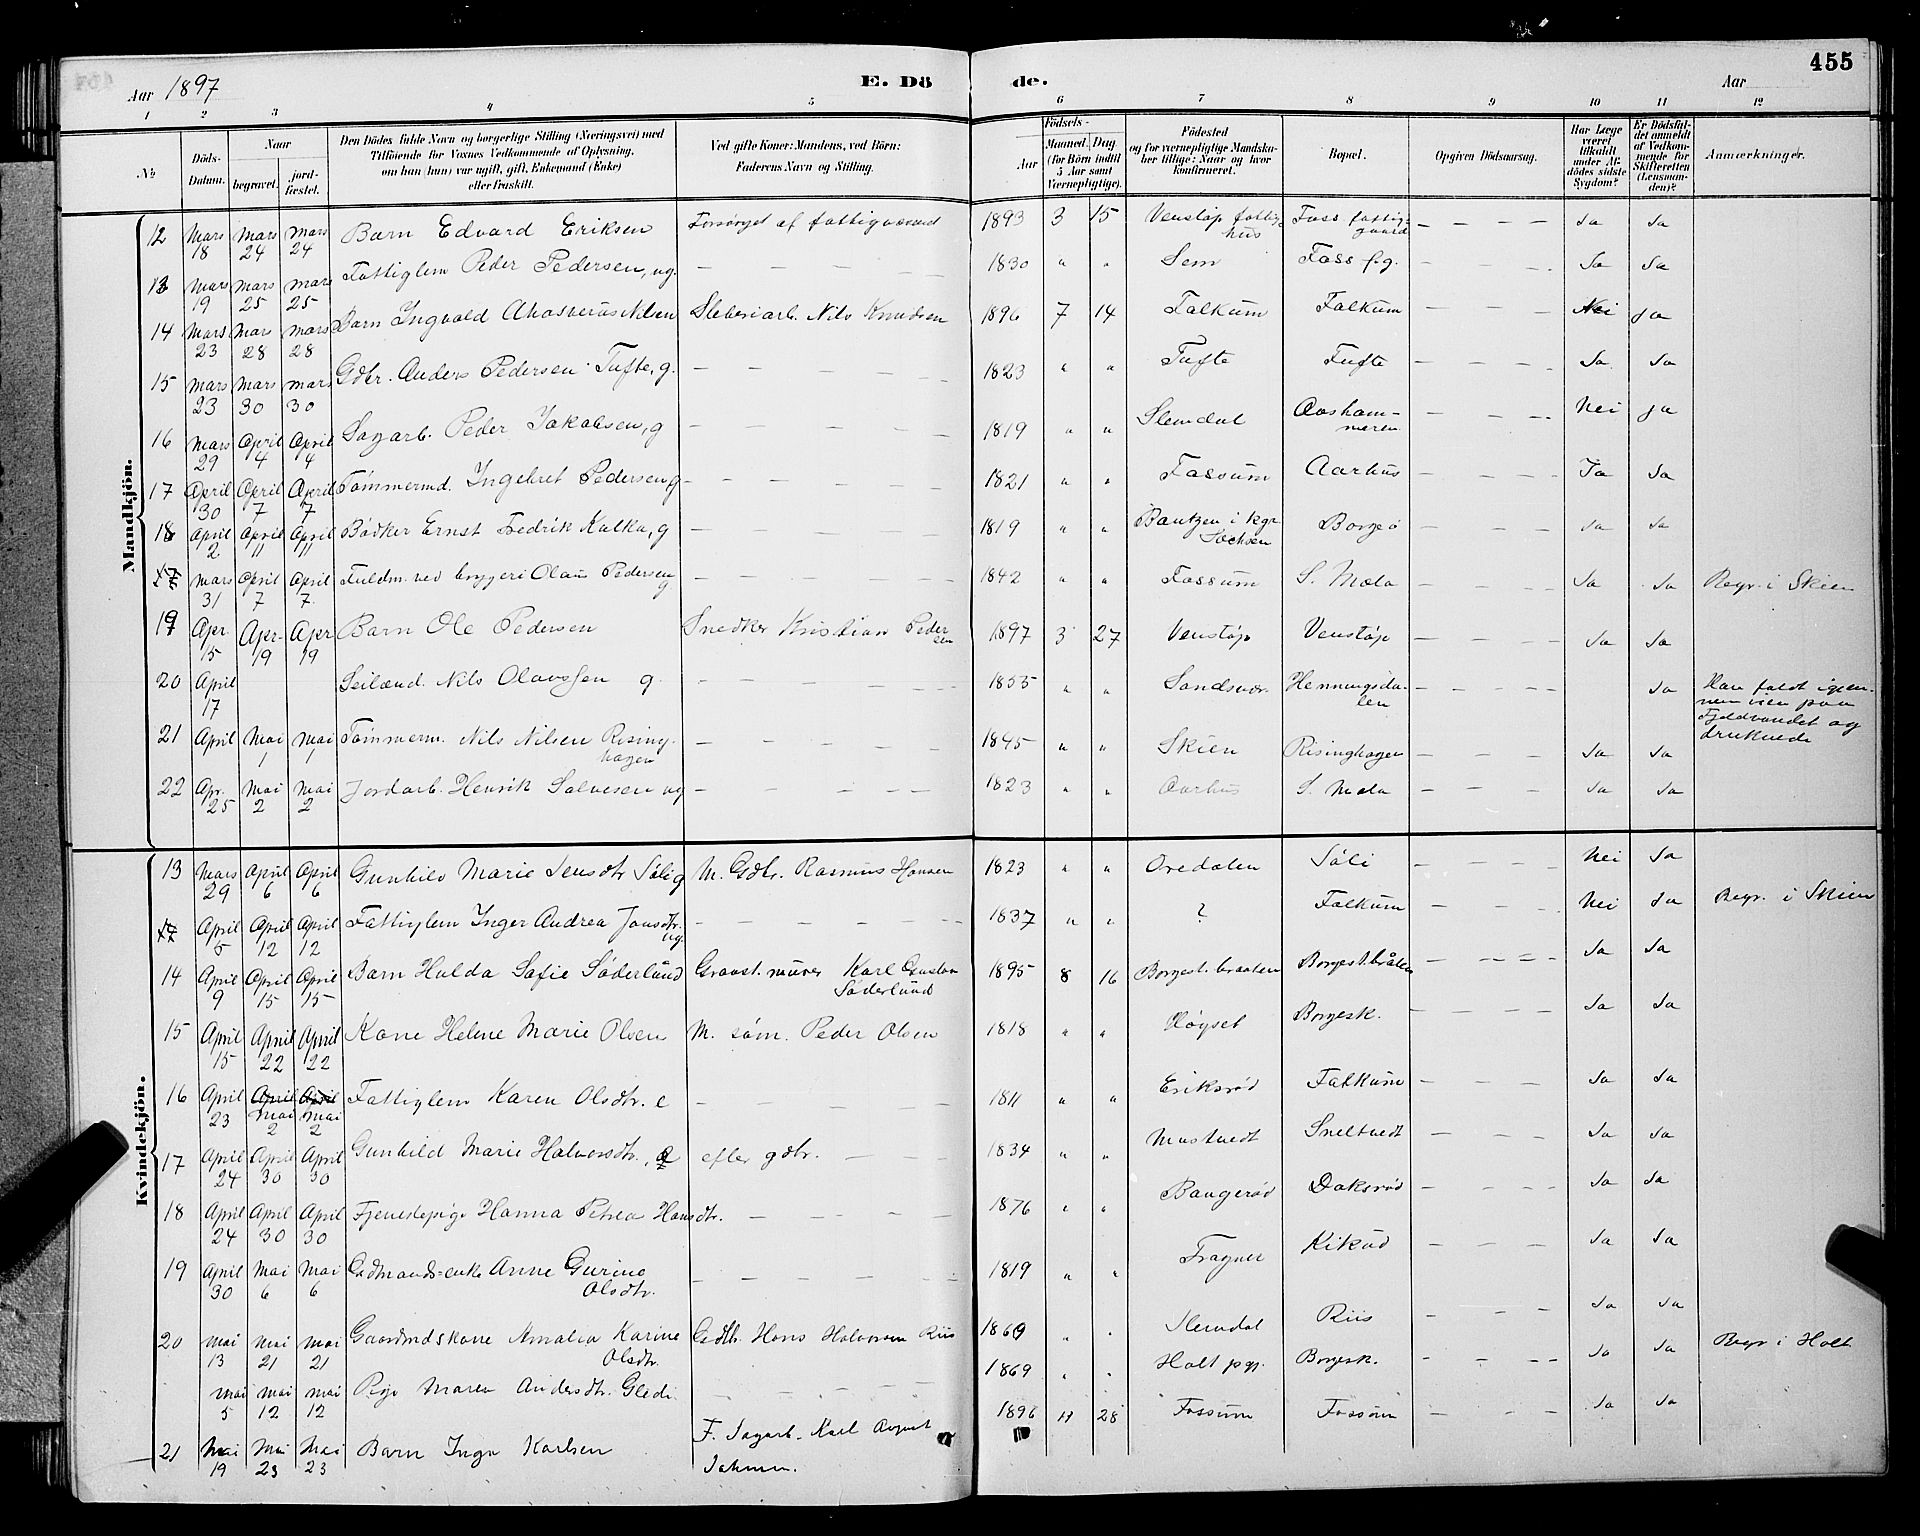 455
Aar 1897 E. Dö de. Aar
1 2 3 4 5 6 7 8 9 10 11 12
No
Döds-Datum.
Naar
begravet.
jord-fæstet.
Den Dödes fulde Navn og borgerlige Stilling (Næringsvei) med
Tilföiende for Voxnes Vedkommende af Oplysning,
om han (hun) var ugift, gift, Enkemand (Enke)
eller fraskilt.
Ved gifte Koner: Mandens, ved Börn:
Faderens Navn og Stilling.
Födsels-
Aar
Maaned. Dag
(for Börn indtil
5 Aar samt
Værnepligtige).
Födested
og for værnepligtige Mandska-
ber tillige: Naar og hvor
konfirmeret.
Bopæl.
Opgiven Dödsaarsag.
Har Læge
været
tilkaldt
under Af-
dödes sidste
Sygdom?
Er Dödsfal-
det anmeldt
af Vedkom-
mende for
Skifteretten
(Lensman-
den)?
Anmærkninger.
Mandkjön.
12 Mars 18 Mars 24 Mars 24 Barn Edvard Eriksen Forsörget af fattigvæsenet 1893 3 15 Venstöp fattighus Foss fattiggaard — — — — Ja Ja
13 Mars 19 Mars 25 Mars 25 Fattiglem Peder Pedersen, ug. — — — — 1830 " " Sem Foss f.g. — — — — Ja Ja
14 Mars 23 Mars 28 Mars 28 Barn Ingvald Ahasverus Nilsen Sleberiarb. Nils Knudsen 1896 7 14 Falkum Falkum — — — — Nei ja
15 Mars 23 Mars 30 Mars 30 Gdbr. Anders Pedersen Tufte, g. — — — — 1823 " " Tufte Tufte — — — — Ja Ja
16 Mars 29 April 4 April 4 Sagarb. Peder Jakobsen, g — — — — 1819 " " Slemdal Aashammeren — — — — Nei ja
17 April 30 April 7 April 7 Tömmermd. Ingebret Pedersen g — — — — 1821 " " Fossum Aarhus — — — — Ja Ja
18 April 2 April 11 April 11 Bödker Ernst Fredrik Kalka, g — — — — 1819 " " Bautzen i kgr. Sachsen Borgeö — — — — Ja Ja
17 Mars 31 April 7 April 7. Fuldm. ved bryggeri Olaus Pedersen g — — — — 1842 " " Fossum S. Mæla — — — — Ja Ja Begr. i Skien
19 Apr. 15 Apr. 19 Apr 19 Barn Ole Pedersen Snedker Kristian Pedersen 1897 3 27 Venstöp Venstöp — — — — Ja Ja
20 April 17 Nils Olavssen g. — — — — 1855 " " Sandsvær. Henningsdalen — — — — Ja Han faldt igjennem isen paa Fjeldvandet og druknede
21 April Mai 1 Mai 1 Tömmerm. Nils Nilsen Risinghagen — — — — 1845 " " Skien Risinghagen — — — — Ja Ja
22 Apr. 25 Mai 2 Mai 2 Jordarb. Henrik Salvesen ug — — — — 1823 " " Aarhus S. Mæla — — — — Ja Ja
Kvindekjön.
13 Mars 29 April 6 April 6 Gunhild Marie Jensdtr Söli g M. Gdbr. Rasmus Hansen 1823 " " Oredalen Söli — — — — Nei Ja
17 April 5 April 12 April 12 Fattiglem Inger Andrea Jonsdtr. ug. — — — — 1837 " " ? Falkum Nei Ja Begr. i Skien
14 April 9 April 15 April 15 Barn Hulda Sofie Söderlund Graast. murer Karl Gustav Söderlund 1895 8 16 Borgest. braaten Borgest. bråten — — — — Ja Ja
15 April 15 April 22 April 22 Kone Helene Marie Olsen M. söm. Peder Olsen 1818 " " Högset Borgesk. Ja Ja
16 April 23 April Mai 2 April Mai 2 Fattiglem Karen Olsdtr. e — — — — 1811 " " Eriksröd Falkum — — — — Ja Ja
17 April 24 April 30 April 30 Gunhild Marie Halvorsdtr., e efter gdbr. — — 1834 " " Mustvedt Sneltvedt — — — — Ja Ja
18 April 24 April 30 April 30 Tjenestepige Hanna Petrea Hansdtr. — — — 1876 " " Baugeröd Daksröd — — — — Ja Ja
19 April 30 Mai 6 Mai 6 Gdmands-enke Anne Gurine Olsdtr. — — — — 1819 " " Fragner Kikud — — — — Ja Ja
20 Mai 13 Mai 21 Mai 21 Gaardmdskone Amalia Karine Olsdtr. Gdbr. Hans Halvorsen Riis 1869 " " Slemdal Riis — — Ja Ja
Mai 5 Mai 12 Mai 12 Pige Maren Andersdtr. — — — — 1869 " " Holt pgj. Borgesk. — — — — Ja Ja Begr. i Holt
21 Mai 19 Mai 23 Mai 23 Barn Inga Karlsen F. Sagarb. Karl August 1896 11 28 Fossum Fossum — — — — Ja Ja